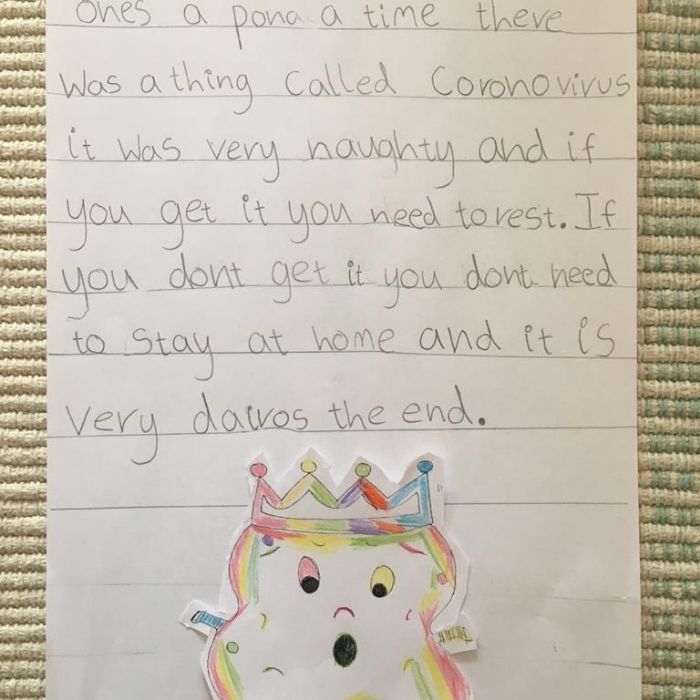 ones a pona a time there
was a thing called Coronovirus
it was very naughty and if
you get it you need to rest. If
you dont get it you dont need
to stay at home and it is
very dairos the end.